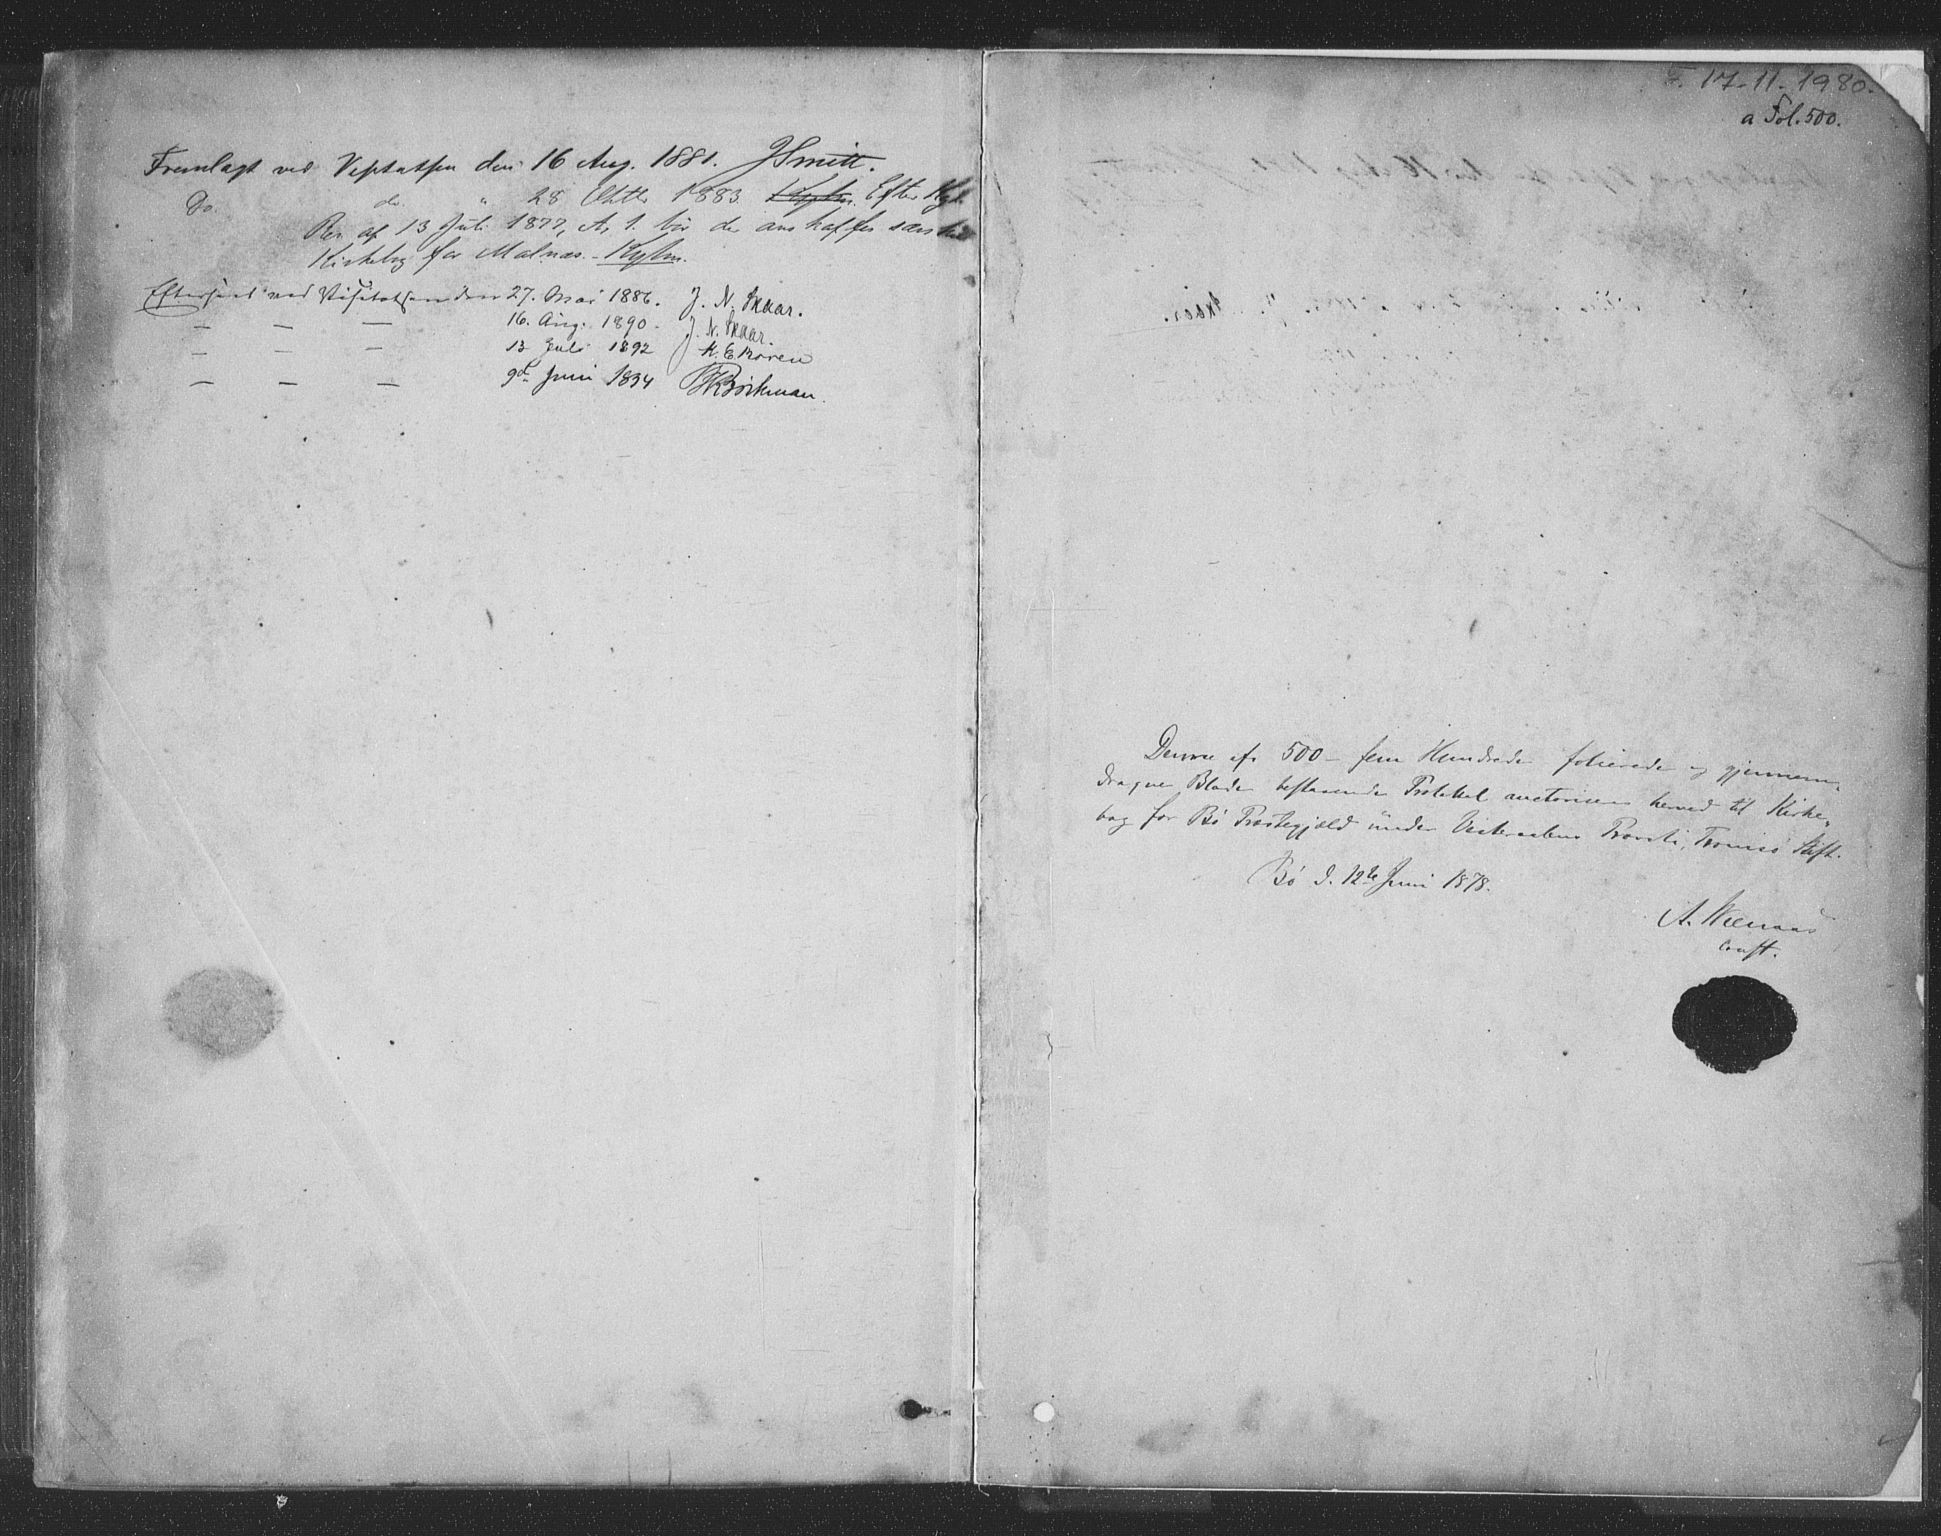 Fremlagt ved Visitatsen den 16 Aug. 1881. JSmitt.
Do. do. " 28 Oktbr 1883. Efter Kgl.
Res. af 13 Juli 1877, No 1. bør der anskaffes særskilt
Kirkebog for Malnæs.
Efterseet ved Visitatsen den 27. Mai 1886. J. N. Skaar.
— — — 16. Aug. 1890. J. N. Skaar.
— — — 13 Juli 1892
— — — 9de Juni 1894 Bøckman.
17-11-1980.
a Fol. 500.
Denne af 500 - fem Hundrede folierede og gjennem-
dragne Blade bestaaende Protokol auctoriseres herved til Kirke-
bog for Bø Præstegjæld under Vesteraalens Provsti, Tromsø Stift.
Bø d. 12te Juni 1878.
const.